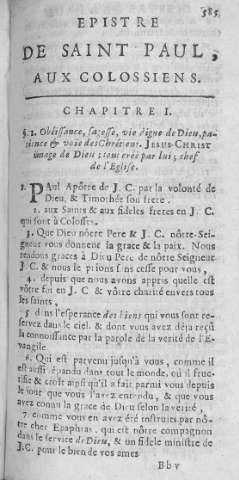 585
EPISTRE
DE SAINT PAUL,
AUX COLOSSIENS.
CHAPITRE I.
§. 1. Obéissance, sagesse, vie digne de Dieu, pa-
tience & voie des Chrétiens. JESUS-CHRIST
image de Dieu ; tout créé par lui ; chef
de l'Eglise.
1. PAul Apôtre de J. C. par la volonté de
Dieu, & Timothée son frere.
2. aux Saints & aux fideles freres en J. C.
qui sont à Colosse.
3. Que Dieu nôtre Pere & J. C. nôtre Sei-
gneur vous donnent la grace & la paix. Nous
rendons graces à Dieu Pere de nôtre Seigneur
J. C. & nous le prions sans cesse pour vous,
4. depuis que nous avons appris quelle est
vôtre foi en J. C. & vôtre charité envers tous
les saints,
5 dans l'esperance des biens qui vous sont re-
servez dans le ciel & dont vous avez déja reçû
la connoissance par la parole de la verité de l'E-
vangile
6. Qui est parvenu jusqu'à vous, comme il
est aussi épandu dans tout le monde, où il fruc-
tifie & croît ainsi qu'il a fait parmi vous depuis
le jour que vous l'avez entendu, & que vous
avez connu la grace de Dieu selon la verité,
7 comme vous en avez été instruits par nô-
tre cher Epaphras, qui est nôtre compagnon
dans le service de Dieu, & un fidele ministre de
J. C. pour le bien de vos ames
Bbv